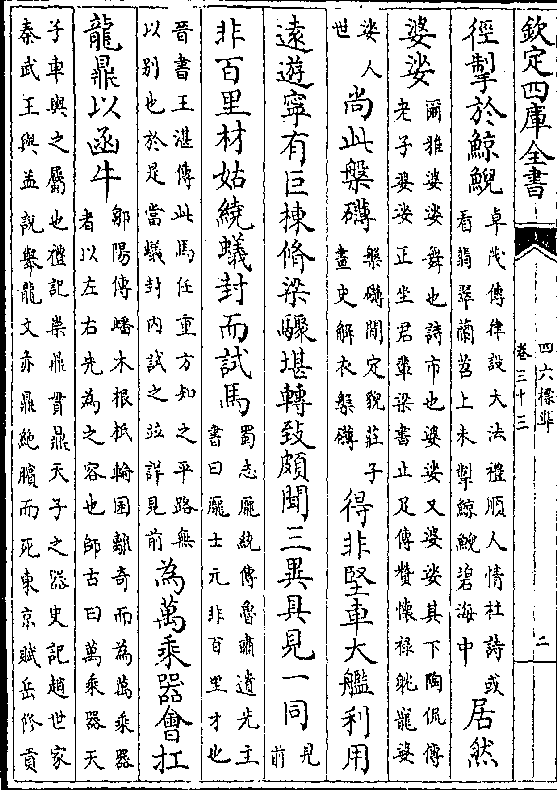 欽定四庫全書
四六標準
卷三十三
二
徑掣於鯨鯢
卓茂傳律設大法禮順人情杜詩或
看翡翠蘭苕上未掣鯨鯢碧海中
居然
婆娑
爾雅婆娑舞也詩市也婆娑又婆娑其下陶侃傳
老子婆娑正坐君輩梁書止足傳贊懷禄躭寵婆
娑人
世
尚此槃礴
槃礴閒定貌莊子
畫史解衣槃礴
得非堅車大艦利用
遠遊寧有巨棟脩梁驟堪轉致頗聞三異具見一同
見
前
非百里材姑繞蟻封而試馬
蜀志龐統傳魯肅遺先主
書曰龐士元非百里才也
晉書王湛傳此馬任重方知之平路無
以别也於是當蟻封内試之並詳見前
為萬乘器會扛
龍鼎以函牛
鄒陽傳蟠木根柢輪囷離奇而為萬乘器
者以左右先為之容也師古曰萬乘器天
子車輿之屬也禮記崇鼎貫鼎天子之器史記趙世家
秦武王與孟說舉龍文赤鼎絕臏而死東京賦岳修貢